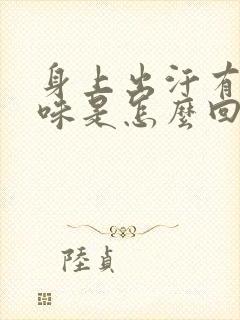 身上出汗有
味是怎麼回
陸貞